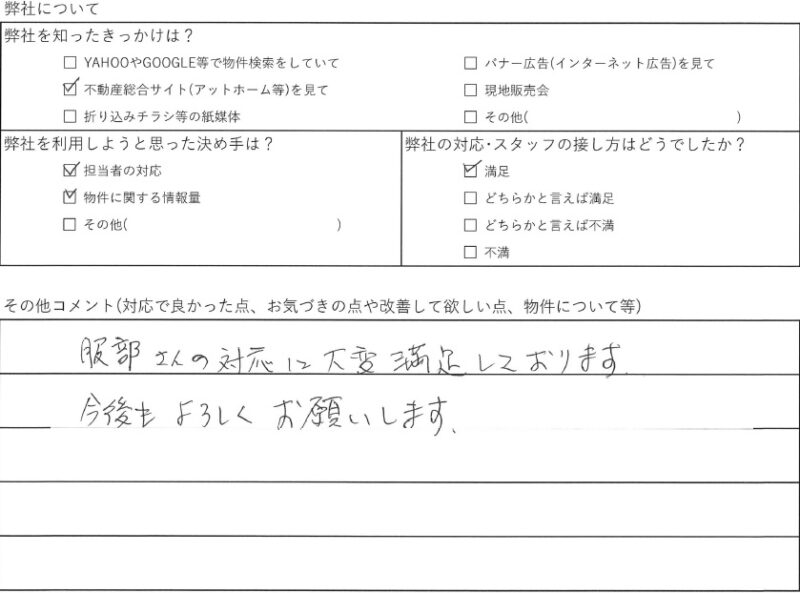 弊社について
弊社を知ったきっかけは？
□ YAHOOやGOOGLE等で物件検索をしていて
□ バナー広告(インターネット広告)を見て
☑ 不動産総合サイト(アットホーム等)を見て
□ 現地販売会
□ 折り込みチラシ等の紙媒体
□ その他( )
弊社を利用しようと思った決め手は？
☑ 担当者の対応
☑ 物件に関する情報量
□ その他( )
弊社の対応・スタッフの接し方はどうでしたか？
☑ 満足
□ どちらかと言えば満足
□ どちらかと言えば不満
□ 不満
その他コメント(対応で良かった点、お気づきの点や改善して欲しい点、物件について等)
服部さんの対応に大変満足しております.
今後もよろしくお願いします.